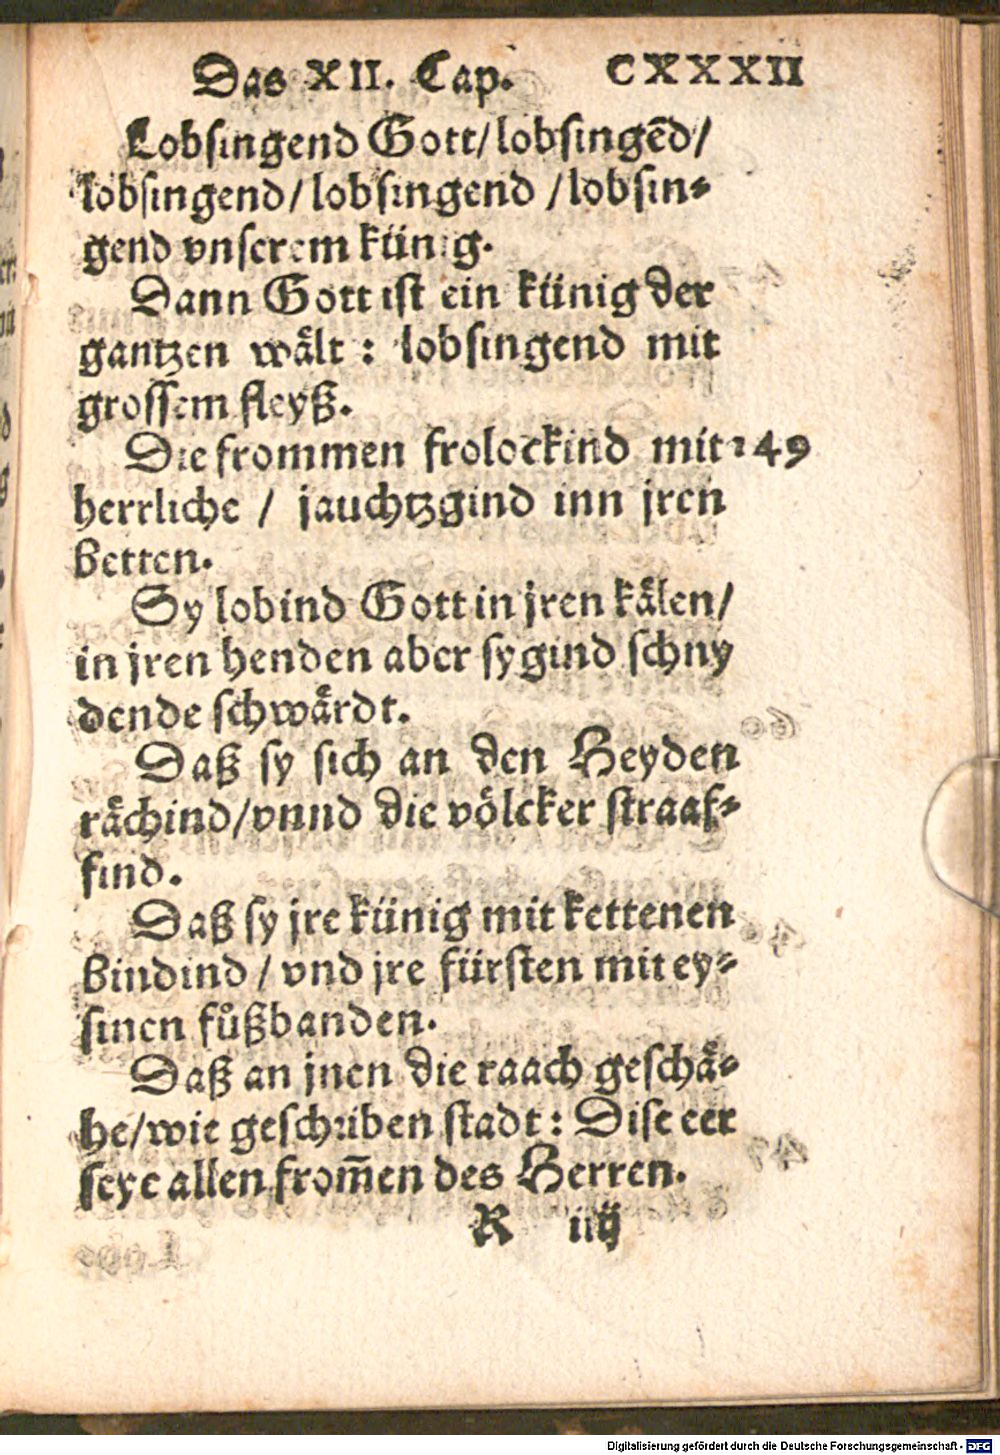 Das XII. Cap. CXXXII
Lobsingend Gott/ lobsingēd/
lobsingend/ lobsingend / lobsin⸗
gend vnserem künig.
Dann Gott ist ein künig der
gantzen wält : lobsingend mit
grossem fleyß.
Die frommen frolockind mit 149
herrliche / jauchtzgind inn jren
betten.
Sy lobind Gott in jren kälen/
in jren henden aber sygind schny
dende schwärdt.
Daß sy sich an den Heyden
rächind/ vnnd die völcker straaf⸗
find.
Daß sy jre künig mit kettenen
bindind / vnd jre fürsten mit ey⸗
sinen fůßbanden.
Daß an jnen die raach geschä⸗
he/ wie geschriben stadt : Dise eer
seye allen from̄en des Herren.
R iiij
Digitalisierung gefördert durch die Deutsche Forschungsgemeinschaft - DFG